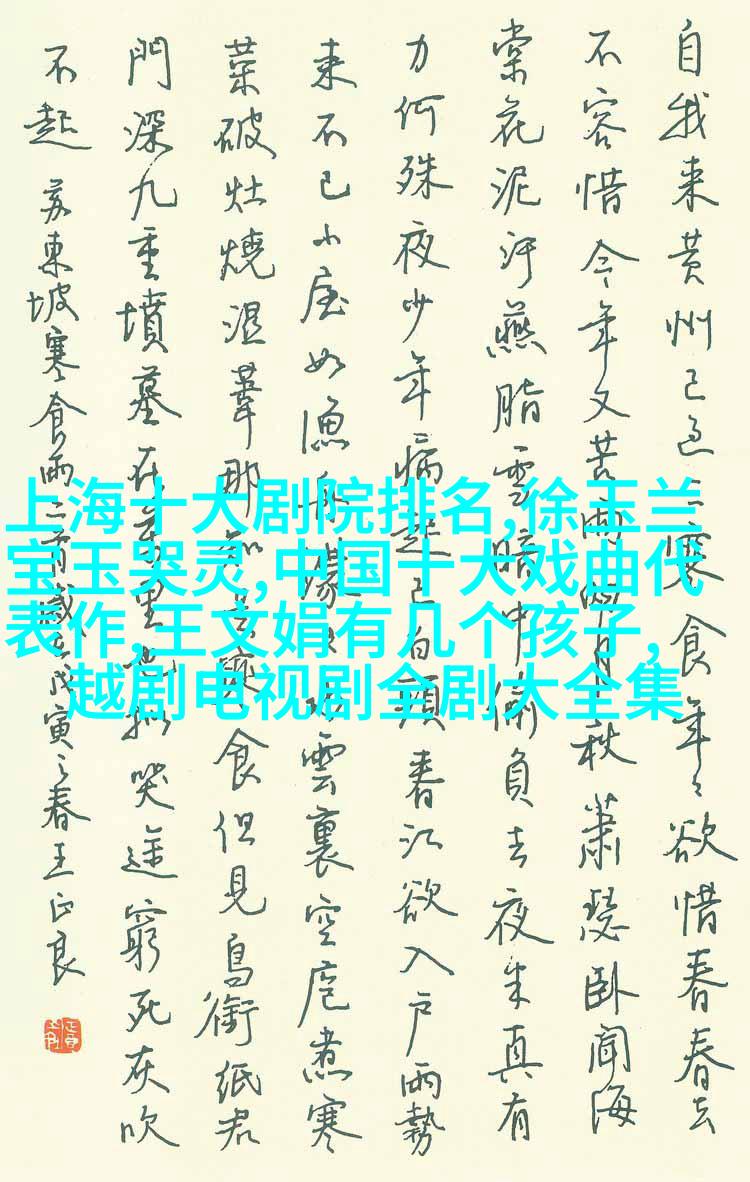 自我来黄州已過三寒食年々欲惜春春去
不容惜今年又苦雨兩月秋蕭瑟卧聞海
棠花泥汙燕脂雪暗中偷負去夜半真有
力何殊夜少年病起已白頭春江欲入户雨勢
来不已小屋如漁舟濛々水雲裏空庖煮寒
菜破灶燒溼葦那知是寒食但見烏銜紙君
門深九重墳墓在萬里也擬哭途窮死灰吹
不起 苏東坡寒食雨二首歲在戊寅之春王正良
上海十大剧院排名,徐玉兰
宝玉哭灵,中国十大戏曲代
表作,王文娟有几个孩子,
越剧电视剧全剧大全集